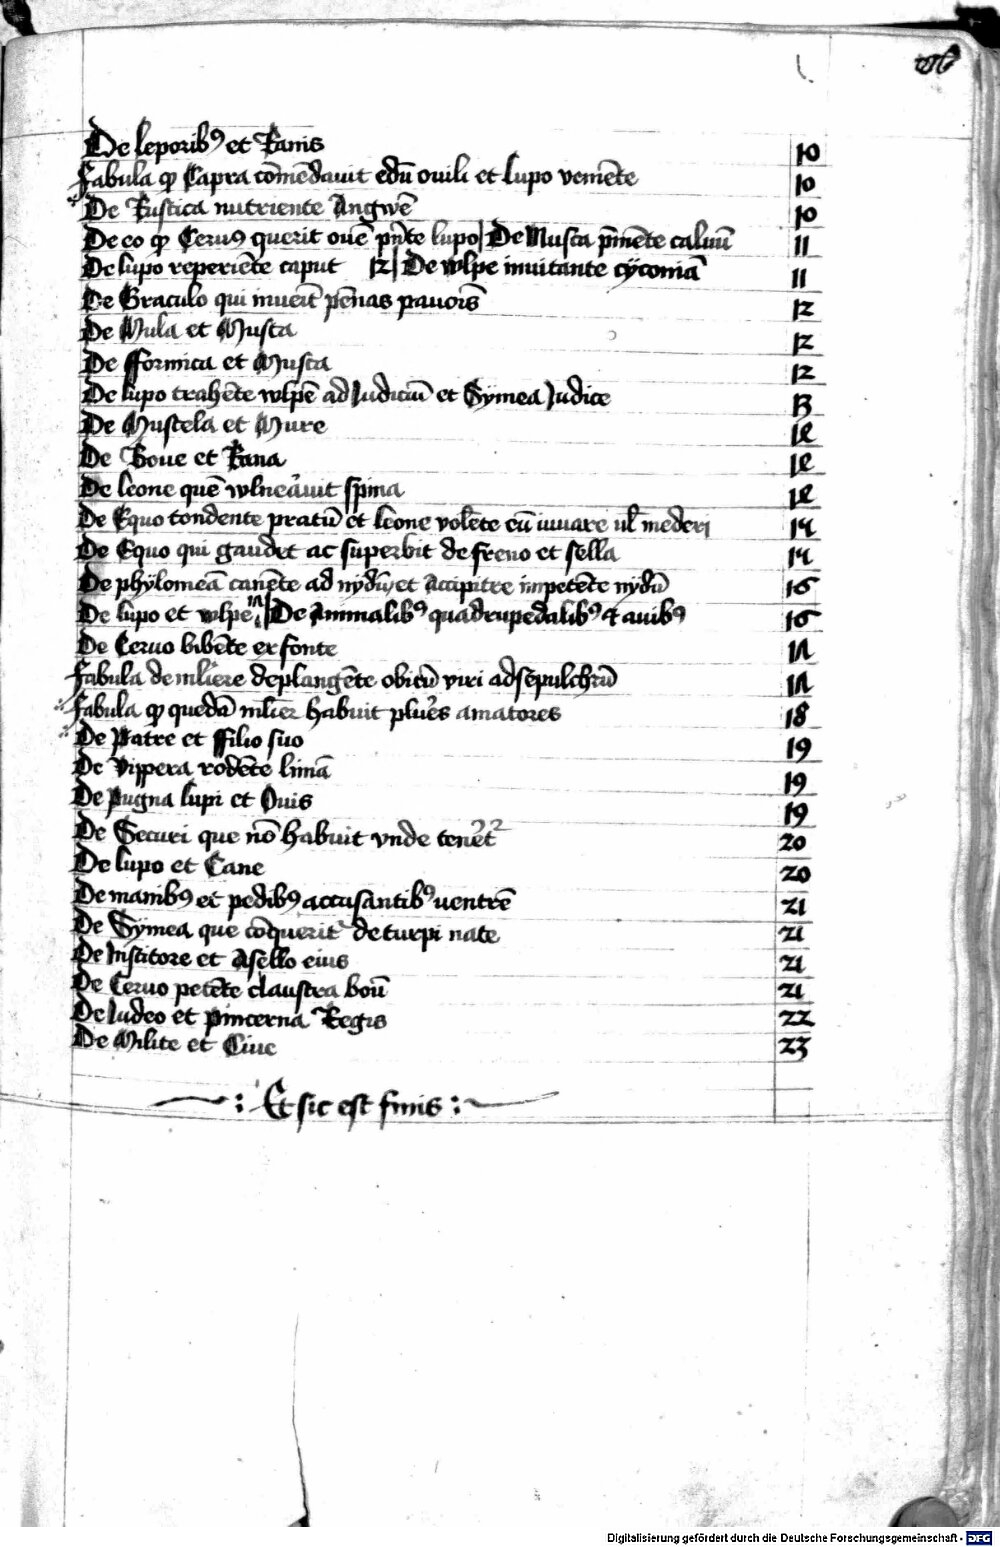 De leporibꝰ et Ranis 10
Fabula ꝙ Capra com̄edauit edū ouili et lupo venie᷒te 10
De Rustica nutriente Angwē 10
De eo ꝙ Ceruꝰ querit ouē pn̄te lupo | De Musca p̄mēte caluū 11
De lupo reperiēte caput 12 | De wlpe inuitante cÿconiā 11
De Graculo qui inueīt pēnas pauoīs 12
De Mula et Musca 12
De fformica et Musca 12
De lupo trahēte wlpē ad Judiciū et Symea Judice 13
De Mustela et Mure 14
De Boue et Rana 14
De leone quē wlneaūit spina 14
De Equo tondente pratū et leone volēte eū iuuare ul̄ mederi 15
De Equo qui gaudet ac superbit de freno et sella 15
De phÿlomeā canēte ad nydū et Accipitre impetēte nydū 16
De lupo et wlpe 17 | De Animalibꝰ quadrupedalibꝰ et auibꝰ 16
De Ceruo bibēte ex fonte 17
Fabula de mliere deplangēte obitū viri ad sepulchrū 17
Fabula ꝙ quedā mlier habuit plures amatores 18
De Patre et Filio suo 19
De Vippera rodēte limā 19
De Pugna lupi et Ouis 19
De Securi que nō habuit vnde tenet᷒ 20
De lupo et Cane 20
De manibꝰ et pedibꝰ accusantibꝰ uentrē 21
De Symea que cōquerit᷒ de turpi nate 21
De Institore et Asello eius 21
De Ceruo petēte claustra boū 21
De Iudeo et pincerna Regis 22
De Milite et Ciue 23
: Et sic est finis :
Digitalisierung gefördert durch die Deutsche Forschungsgemeinschaft - DFG